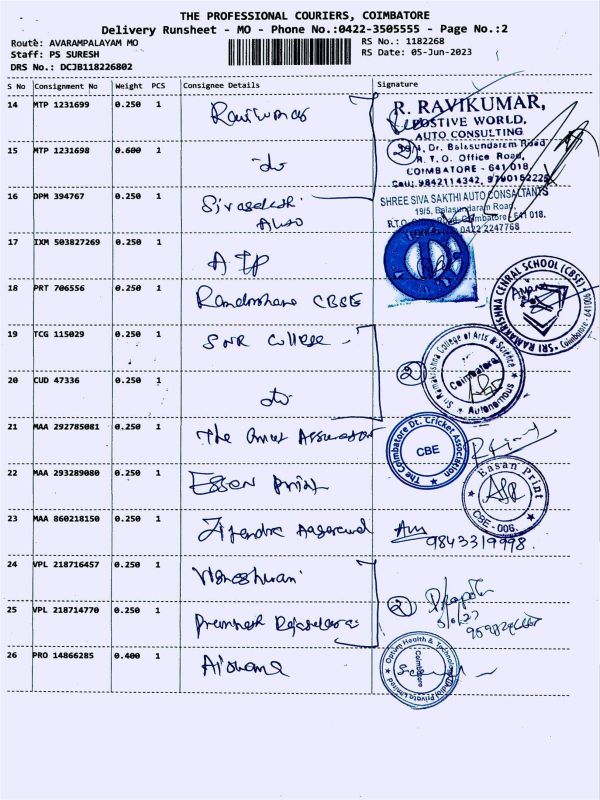 THE PROFESSIONAL COURIERS, COIMBATORE
Delivery Runsheet - MO - Phone No.:0422-3505555 - Page No.:2
Route: AVARAMPALAYAM MO
RS No.: 1182268
Staff: PS SURESH
RS Date: 05-Jun-2023
DRS No.: DCJB118226802
S No Consignment No Weight PCS Consignee Details Signature
14 MTP 1231699 0.250 1 Ravikumar
R. RAVIKUMAR,
POSTIVE WORLD,
AUTO CONSULTING
Dr. Balasundaram Road
R.T.O. Office Road,
COIMBATORE - 641 018,
Cell: 9842114342,
15 MTP 1231698 0.600 1 do
2
16 DPM 394767 0.250 1
SHREE SIVA SAKTHI AUTO CONSULTANTS
19/5, Balasundaram Road,
R.T.O. Office Road, Coimbatore - 641 018.
0422 2247768
17 IXM 503827269 0.250 1
18 PRT 706556 0.250 1 CBSE
SRI RAMAKRISHNA CENRAL SCHOOL (CBSE)
Coimbatore - 641006
19 TCG 115029 0.250 1 SNR College
2
Sri Ramakrishna College of Arts & Science
Coimbatore
Autonomous
20 CUD 47336 0.250 1 do
21 MAA 292785081 0.250 1 The
The Coimbatore Dt. Cricket Association
CBE
22 MAA 293289080 0.250 1 Essen Print
Easan Print
CBE - 006.
23 MAA 860218150 0.250 1 Jitendra Aggarwal
9843319998.
24 VPL 218716457 0.250 1 Vigneshwari
25 VPL 218714770 0.250 1
2
26 PRO 14866285 0.400 1
Optum Health & Technology (India) Private Limited
Coimbatore